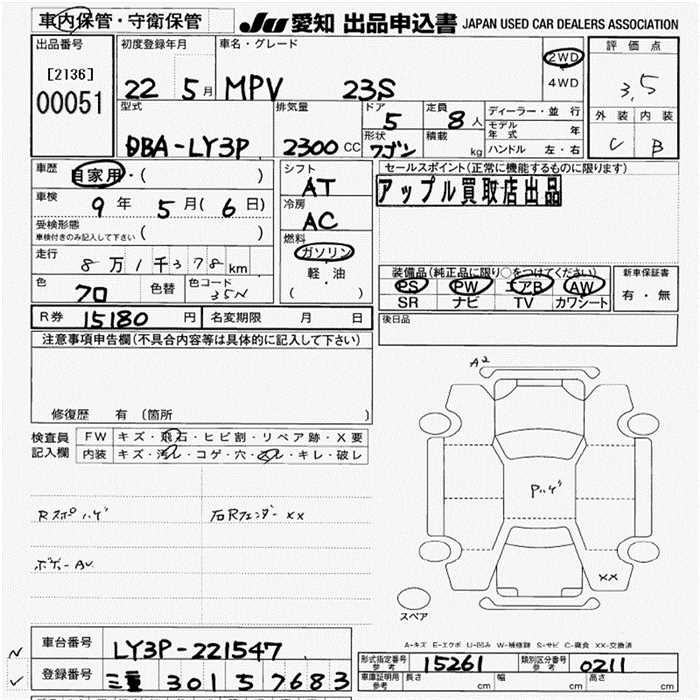 車内保管・守衛保管 JU 愛知 出品申込書 JAPAN USED CAR DEALERS ASSOCIATION
出品番号 [2136] 00051
初度登録年月 22 5月
車名・グレード MPV 23S
2WD
4WD
評価点 3.5
外装 内装
C B
型式 DBA-LY3P
排気量 2300 CC
ドア 5
定員 8人
形状 ワゴン
積載 kg
ディーラー・並行
モデル年式 年
ハンドル 左・右
車歴 自家用・( )
車検 9年 5月(6日)
受検形態
車検付きのみ記入して下さい ( )
走行 8万1千378km
色 クロ 色替 色コード 35N
シフト AT
冷房 AC
燃料
ガソリン
軽・油
( )
セールスポイント(正常に機能するものに限ります)
アップル買取店出品
装備品(純正品に限り○をつけてください)
PS PW エアB AW
SR ナビ TV カワシート
新車保証書
有・無
後日品
R券 15180円 名変期限 月 日
注意事項申告欄(不具合内容等は具体的に記入して下さい)
修復歴 有 (箇所 )
検査員記入欄
FW キズ・飛石・ヒビ割・リペア跡・X要
内装 キズ・汚レ・コゲ・穴・スレ・キレ・破レ
Rスポハゲ 右RフェンダーXX
A2
Pハゲ
XX
スペア
A-キズ E-エクボ U-凹み W-補修跡 S-サビ C-腐食 XX-交換済
車台番号 LY3P-221547
登録番号 三重 301 57683
形式指定番号 参考 15261 類別区分番号 参考 0211
車庫証明用 参考 長さ cm 幅 cm 高さ cm